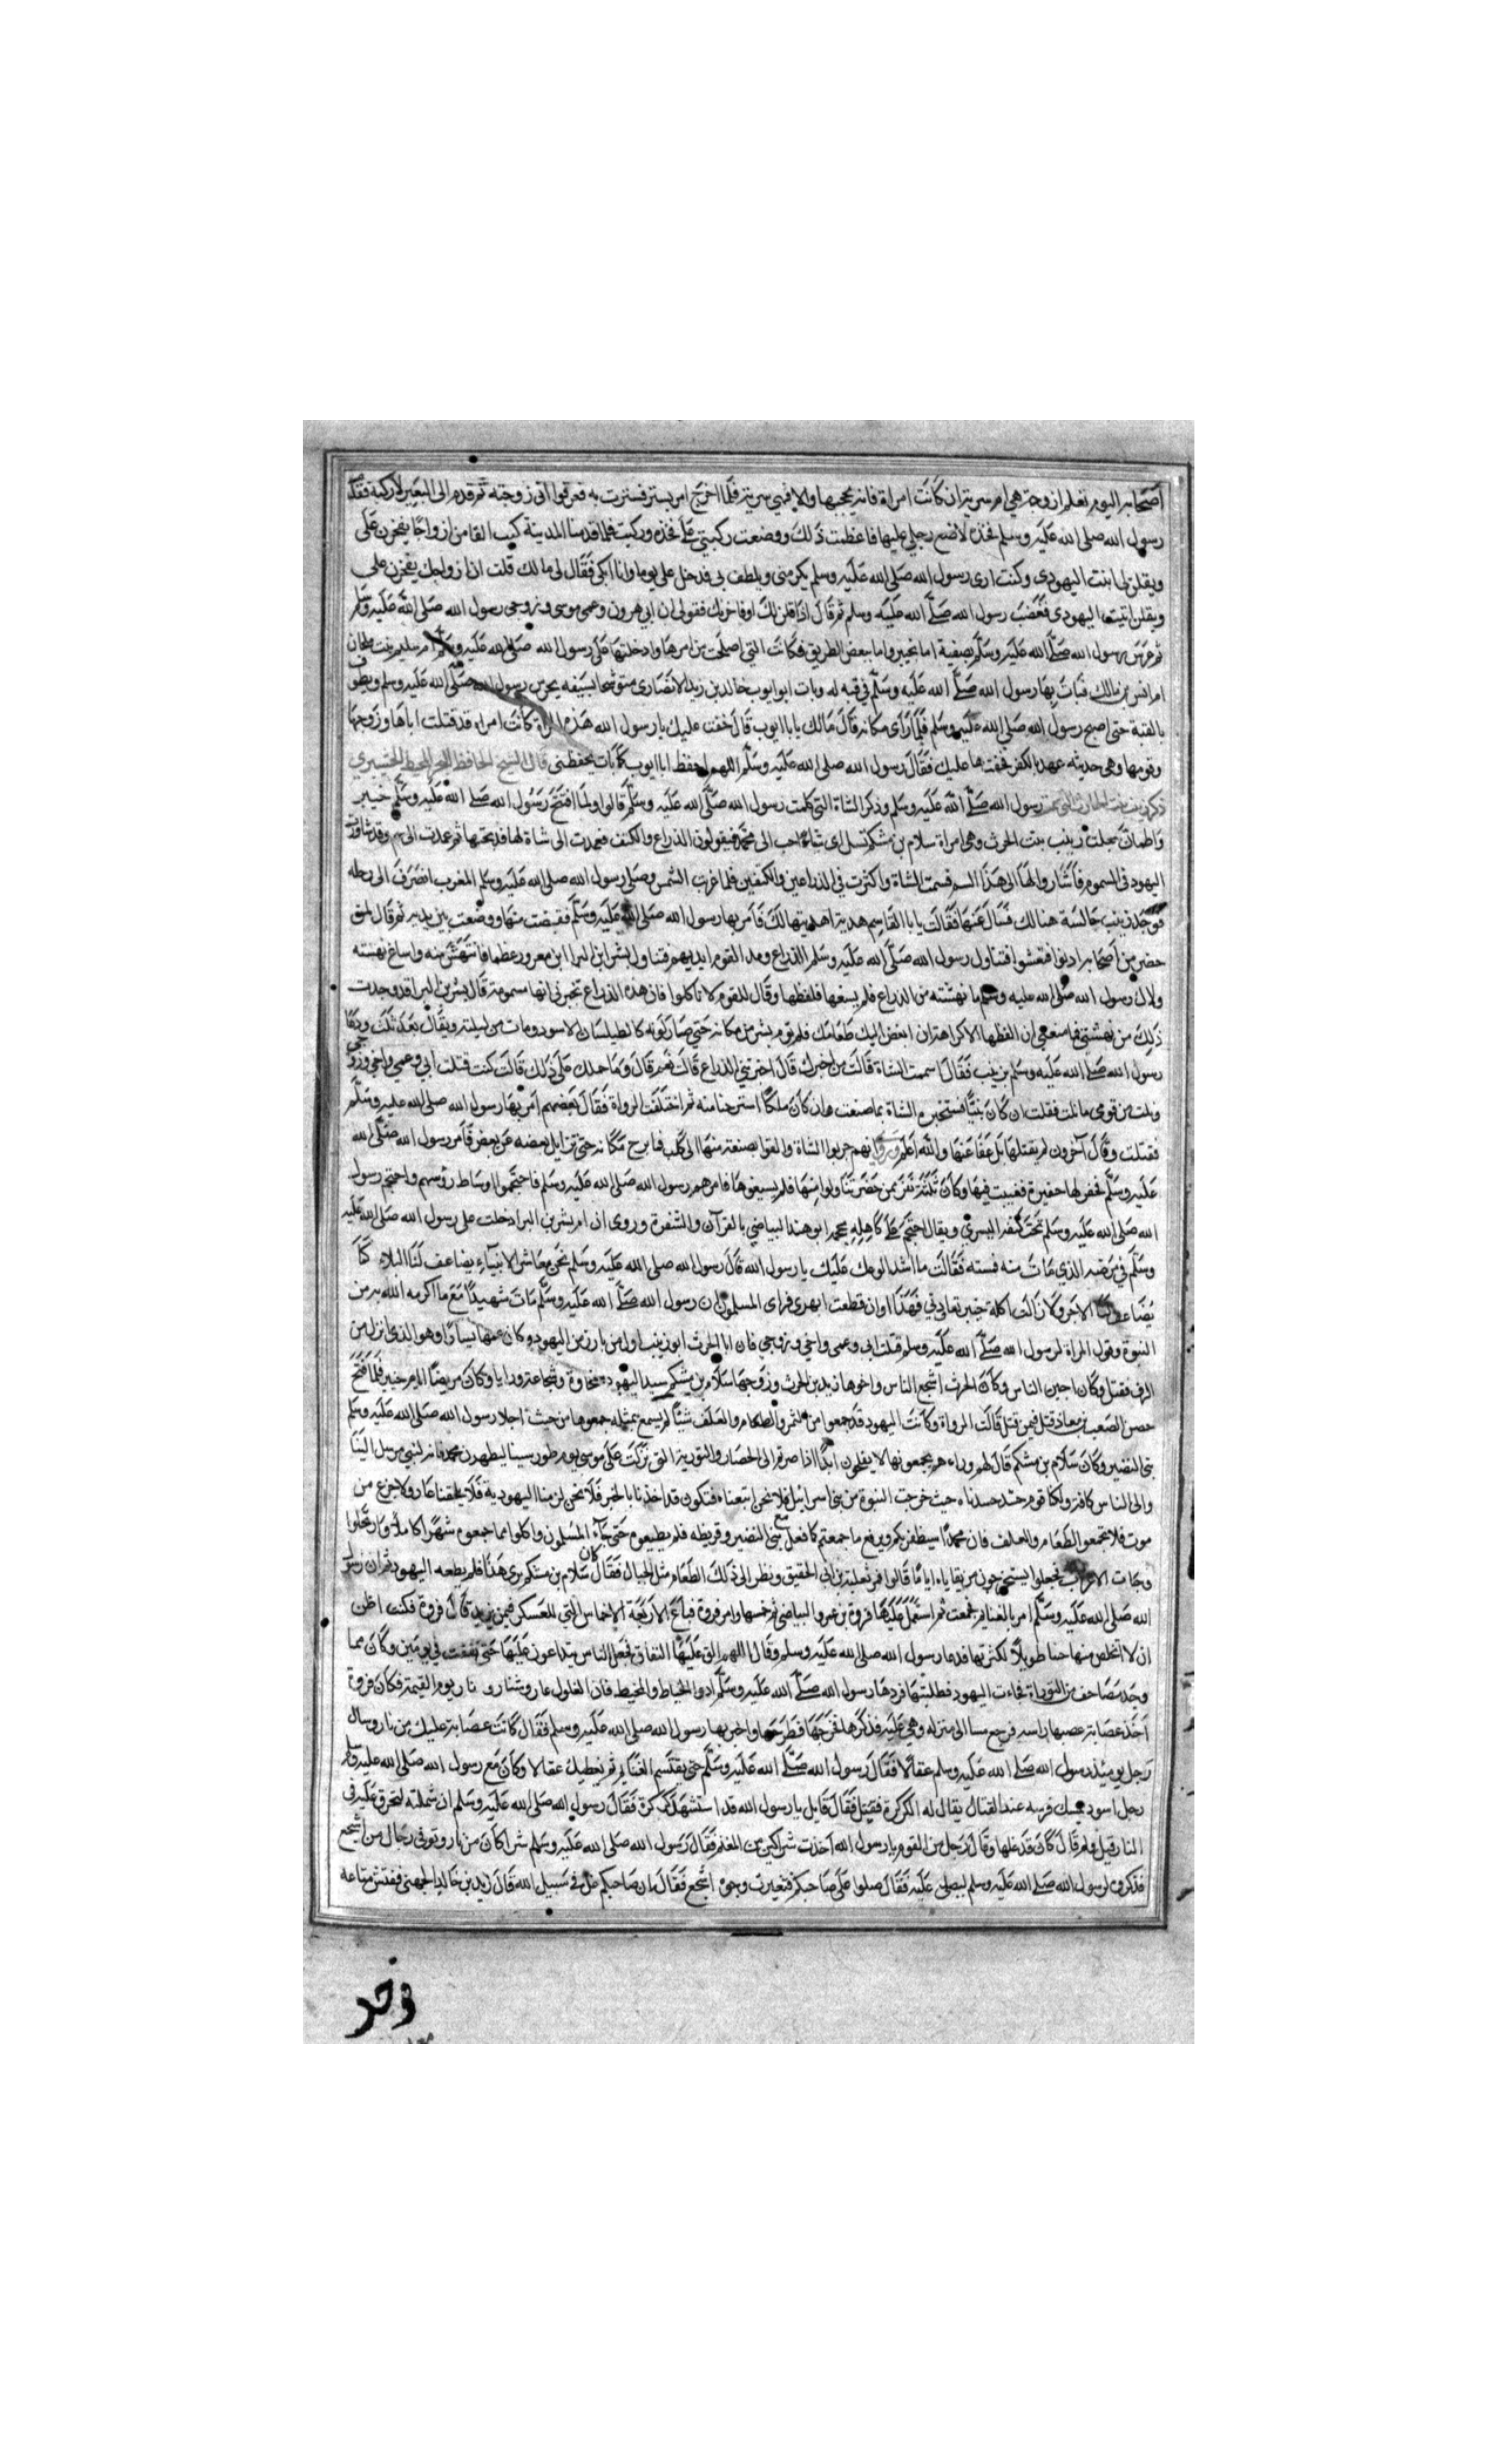 اصحابه اليوم نعلم ازوجة هي ام سرية ان كانت امراة فانه يحجبها والا فهي سرية فلما اخرج امر بستر فسترت به فعرفوا اني زوجته ثم قدم الى البعير لاركبه فقدم
رسول الله صلى الله عليه وسلم فخذه لاضع رجلي عليها فاعظمت ذلك ووضعت ركبتي على فخذه وركبت فلما قدمنا المدينة كنت القا من ازواجا يفخرن على
ويقلن لي بنت اليهودي وكنت ارى رسول الله صلى الله عليه وسلم يكرمنى ويلطف بى فدخل على يوما وانا ابكى فقال لى ما لك قلت ان ازواجك يفخرن على
ويقلن ابنة اليهودى فغضب رسول الله صلى الله عليه وسلم ثم قال اذا قلن لك اوفاخرنك فقولى ان ابى هرون وعمى موسى وزوجى رسول الله صلى الله عليه وسلم
ثم عرس رسول الله صلى الله عليه وسلم بصفية اما بخيبر واما ببعض الطريق فكانت التي اصلحت من امرها وادخلتها على رسول الله صلى الله عليه وسلم ام سليم بنت ملحان
ام انس بن مالك فبات بها رسول الله صلى الله عليه وسلم في قبه له وبات ابو ايوب خالد بن زيد الانصارى متوشحا بسيفه يحرس رسول الله صلى الله عليه وسلم ويطوف
بالقبة حتى اصبح رسول الله صلى الله عليه وسلم فلما رأى مكانه قال مالك يابا ايوب قال خفت عليك يا رسول الله هذه المراة كانت امراه قد قتلت اباها وزوجها
وقومها وهى حديثه عهد بالكفر فخفتها عليك فقال رسول الله صلى الله عليه وسلم اللهم احفظ ابا ايوب كما بات يحفظنى قال الشيخ الحافظ
ذكر زينب بنت الحارث التي سمت رسول الله صلى الله عليه وسلم وذكر الشاة التي كلمت رسول الله صلى الله عليه وسلم قالوا ولما افتتح رسول الله صلى الله عليه وسلم خيبر
واطمان جعلت زينب بنت الحرث وهى امراة سلام بن مشكم تسل اى شاة احب الى محمد فيقولون الذراع والكتف فعمدت الى شاة لها فذبحتها ثم عمدت الى سم وقد شاورت
اليهود في السموم فأشاروا لها الى هذا السم فسمت الشاة واكثرت في الذراعين والكتفين فلما غربت الشمس وصلى رسول الله صلى الله عليه وسلم المغرب انصرف الى رحله
فوجد زينب جالسة هنالك فسال عنها فقالت يابا القاسم هدية اهديتها لك فامر بها رسول الله صلى الله عليه وسلم فقبضت منها ووضعت بين يديه ثم قال لمن
حضر من اصحابه ادنوا فتعشوا فتناول رسول الله صلى الله عليه وسلم الذراع ومد القوم ايديهم فتناول بشر ابن البرا ابن معرور عظما فانتهش منه واساغ نهسته
ولاك رسول الله صلى الله عليه وسلم ما نهشته من الذراع فلم يسغها فلفظها وقال للقوم لا تاكلوا فان هذه الذراع تخبرنى انها مسمومة قال بشر بن البرا قد وجدت
ذلك من نهشتي فما منعني ان الفظها الا كراهة ان ابغض اليك طعامك فلم يقم بشر من مكانه حتى صار لونه كالطيلسان الاسود ومات من ليلته ويقال بعد ذلك ودعا
رسول الله صلى الله عليه وسلم بزينب فقال اسممت الشاة قالت من اخبرك قال اخبرتني الذراع قالت نعم قال وما حملك على ذلك قالت كنت قتلت أبي وعمي واخي وزوجي
ونلت من قومى ما نلت فقلت ان كان نبيا فستخبره الشاة بما صنعت وان كان ملكا استرحنا منه ثم اختلفت الرواة فقال بعضهم امر بها رسول الله صلى الله عليه وسلم
فقتلت وقال آخرون لم يقتلها بل عفا عنها والله اعلم وروى انهم جربوا الشاة والقوا بضعة منها الى كلب فما برح مكانه حتى تزايل بعضه عن بعض فامر رسول الله صلى الله
عليه وسلم فحفر لها حفيرة فغيبت فيها وكان ثلثة نفر ممن حضر تناولوا منها فلم يسيغوها فامرهم رسول الله صلى الله عليه وسلم فاحتجموا اوساط رؤسهم واحتجم رسول
الله صلى الله عليه وسلم تحت كتفه اليسرى ويقال احتجم على كاهله حجمه ابو هند البياضي بالقرآن والشفرة وروى ان ام بشر بن البرا دخلت على رسول الله صلى الله عليه
وسلم في مرضه الذي مات منه فمسته فقالت ما اشد الوعك عليك يا رسول الله قال رسول الله صلى الله عليه وسلم نحن معاشر الانبياء يضاعف لنا البلاء كما
يضاعف لنا الاجر ولا زالت اكلة خيبر تعادني فهذا اوان قطعت ابهرى فراى المسلمون ان رسول الله صلى الله عليه وسلم مات شهيدا مع ما اكرمه الله به من
النبوة وقول المراة لرسول الله صلى الله عليه وسلم قتلت ابى وعمى واخي وزوجي فان ابا الحرث ابو زينب اول من بارز من اليهود وكان عمها يسارا وهو الذي انزل من
الرف فقتل وكان اجبن الناس وكان الحرث اشجع الناس واخوها زيد بن الحرث وزوجها سلام بن مشكم سيد اليهود سخاوة وشجاعة ورايا وكان مريضا ايام خيبر فلما افتتح
حصن الصعب بن معاذ قتل فيمن قتل قالت الرواة وكانت اليهود قد جمعوا من التمر والطعام والعلف شيئا لم يسمع بمثله جمعوها من حيث اجلا رسول الله صلى الله عليه وسلم
بني النضير وكان سلام بن مشكم قال لهم وراءهم يجمعونها لا يفلحون ابدا اذا صرتم الى الحصار والتورية التي نزلت على موسى يوم طور سينا ليظهرن محمد فانه لنبي مرسل الينا
والى الناس كافة ولكنا قوم حسد حسدناه حيث خرجت النبوة من بني اسرائيل فلا نحن اتبعناه فتكون قد اخذنا بالخبر فلا نحن لزمنا اليهودية فلا يلحقنا عار ولا جزع من
موت فلا تجمعوا الطعام والعلف فان محمدا سيظفر بكم ويرفع ما جمعتم كما فعل مع بني النضير وقريظه فلم يطيعوه حتى جآء المسلمون واكلوا مما جمعوه شهرا كاملا وارتحلوا
وجات الاعراب فجعلوا يستخرجون من بقاياه اياما قالوا فمر ثعلبة بن ابى الحقيق ونظر الى ذلك الطعام مثل الجبال فقال كان سلام بن مشكم يرى هذا فلم يطعه اليهود ثم ان رسول
الله صلى الله عليه وسلم امر بالغنايم فجمعت ثم استعمل عليها فروة بن عمرو البياضي ثم خمسها وامر فروة فباع الاربعة الاخماس التي للعسكر فيمن يزيد قال فروة فكنت اظن
ان لا اتخلص منها حينا طويلا لكثرتها فدعا رسول الله صلى الله عليه وسلم وقال اللهم الق عليها النفاق فجعل الناس يتداعون عليها حتى نفقت في يومين وكان مما
وجد مصاحف من التوراة فجاءت اليهود فطلبتها فردها رسول الله صلى الله عليه وسلم ادوا الخياط والمخيط فان الغلول عار وشنار ونار يوم القيمة فكان فروة
اخذ عصابة عصبها راسه فرجع مسا الى منزله وهي عليه فذكرها فخرج بها فطرحها واخبر بها رسول الله صلى الله عليه وسلم فقال كانت عصابة عليك من نار وسال
رجل يومئذ رسول الله صلى الله عليه وسلم عقالا فقال رسول الله صلى الله عليه وسلم حتى يقتسم الغنايم ثم نعطيك عقالا وكان مع رسول الله صلى الله عليه وسلم
رجل اسود يمسك فرسه عند القتال يقال له الكركرة فقتل فقال قايل يا رسول الله قد استشهد كركرة فقال رسول الله صلى الله عليه وسلم ان شملته لتحرق عليه في
النار قيل ولم قال كان قد غلها وقال رجل من القوم يا رسول الله اخذت شراكين من المغنم فقال رسول الله صلى الله عليه وسلم شراكان من نار وتوفي رجال من اشجع
فذكروه لرسول الله صلى الله عليه وسلم ليصلى عليه فقال صلوا على صاحبكم فتغيرت وجوه اشجع فقال ان صاحبكم غل في سبيل الله قال زيد بن خالد الجهني ففتش متاعه
فوجد